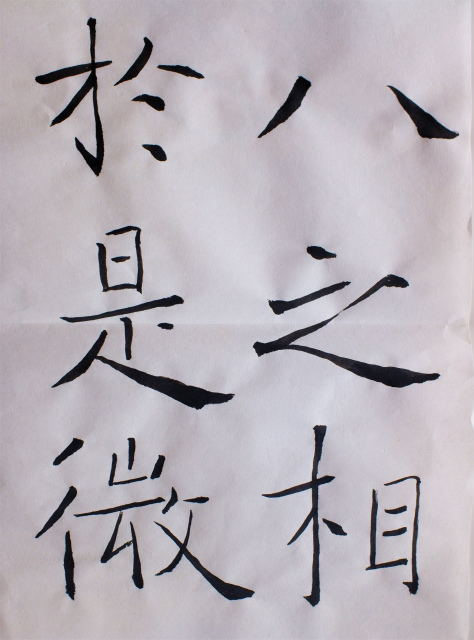 八之相
於是微